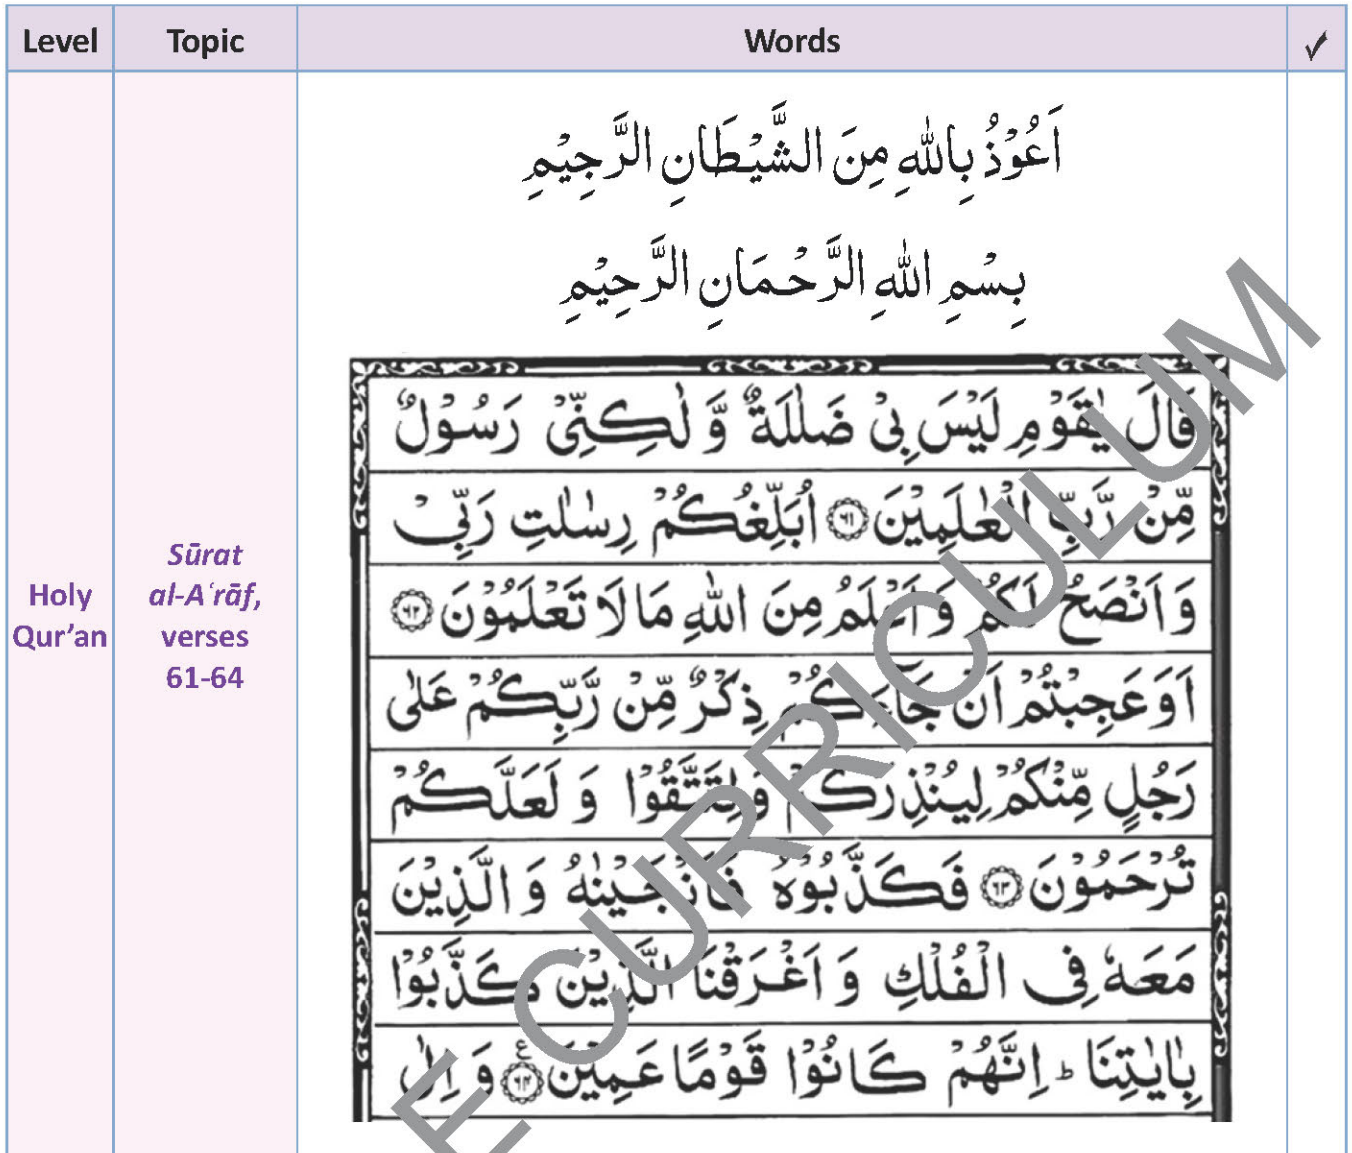 Level Topic Words ✓
Holy Qur’an
Sūrat al-Aʿrāf, verses 61-64
اَعُوْذُ بِاللّٰهِ مِنَ الشَّيْطَانِ الرَّجِيْمِ
بِسْمِ اللّٰهِ الرَّحْمَانِ الرَّحِيْمِ
قَالَ يٰقَوْمِ لَيْسَ بِيْ ضَلٰلَةٌ وَّ لٰكِنِّيْ رَسُوْلٌ
مِّنْ رَّبِّ الْعٰلَمِيْنَ ﴿۶۱﴾ اُبَلِّغُكُمْ رِسٰلٰتِ رَبِّيْ
وَ اَنْصَحُ لَكُمْ وَ اَعْلَمُ مِنَ اللّٰهِ مَا لَا تَعْلَمُوْنَ ﴿۶۲﴾
اَوَ عَجِبْتُمْ اَنْ جَآءَكُمْ ذِكْرٌ مِّنْ رَّبِّكُمْ عَلٰى
رَجُلٍ مِّنْكُمْ لِيُنْذِرَكُمْ وَ لِتَتَّقُوْا وَ لَعَلَّكُمْ
تُرْحَمُوْنَ ﴿۶۳﴾ فَكَذَّبُوْهُ فَاَنْجَيْنٰهُ وَ الَّذِيْنَ
مَعَهٗ فِي الْفُلْكِ وَ اَغْرَقْنَا الَّذِيْنَ كَذَّبُوْا
بِاٰيٰتِنَا ؕ اِنَّهُمْ كَانُوْا قَوْمًا عَمِيْنَ ﴿۶۴﴾ ع وَ اِلٰى
E CURRICULUM